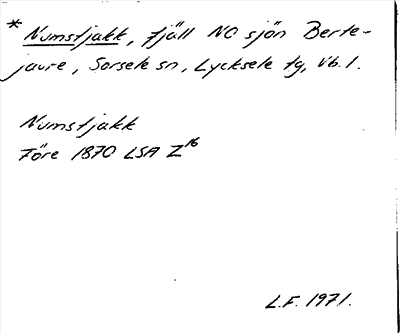 * Numstjakk, fjäll NO sjön Berte-
jaure, Sorsele sn, Lycksele tg, Vb. l.
Numstjakk
Före 1870 LSA Z16
L.F. 1971.